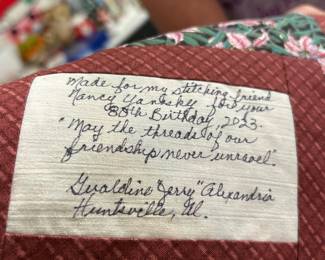 Made for my stitching friend
Nancy Yansky for your
80th Birthday, 2023.
"May the threads of our
friendship never unravel."
Geraldine "Jerry" Alexandria
Huntsville, Al.